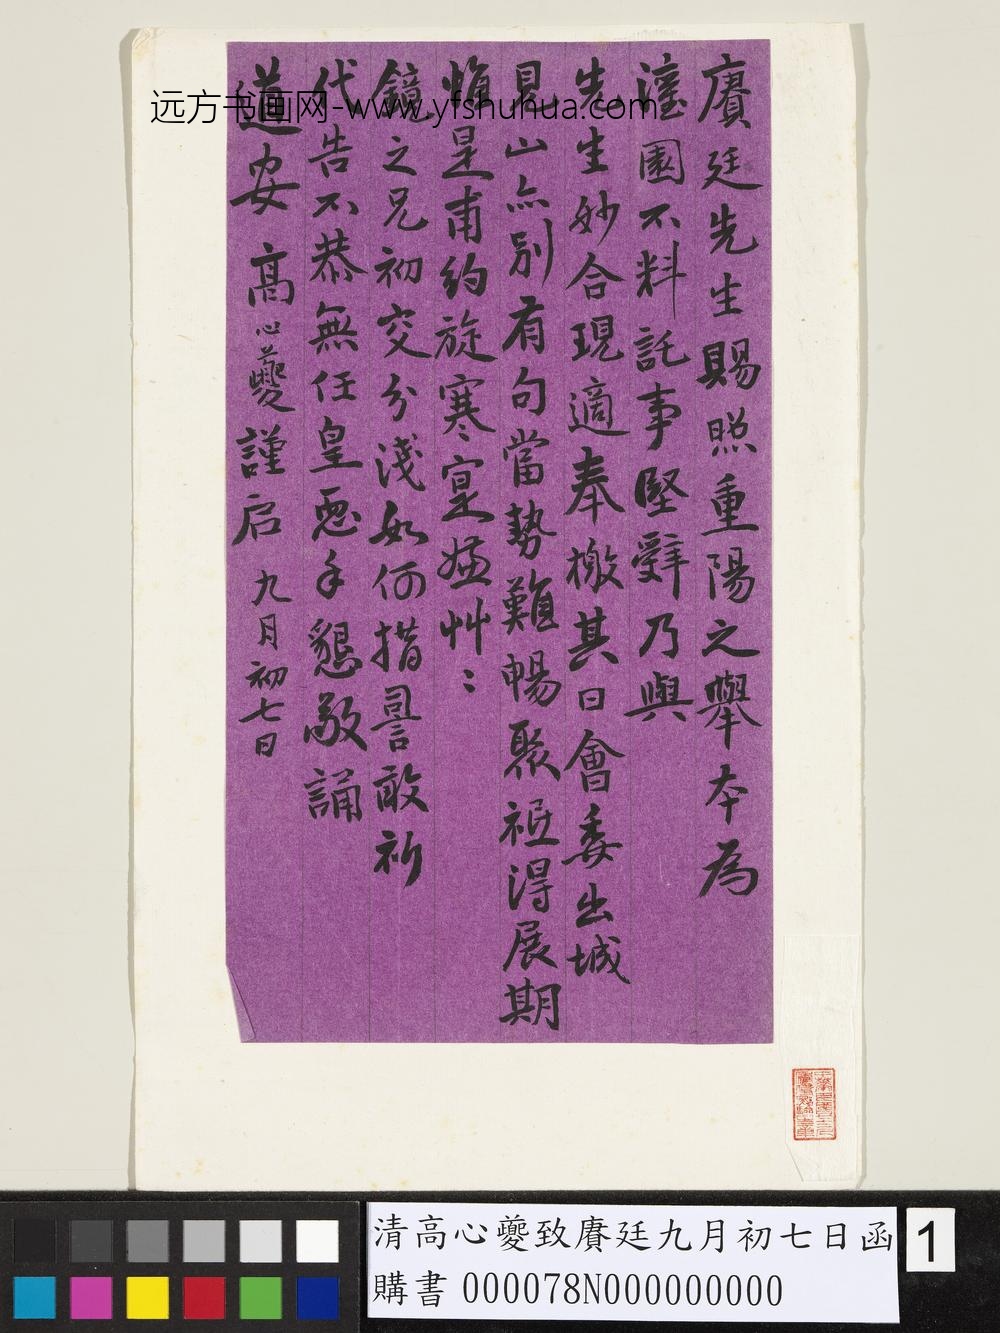 賡廷先生賜照重陽之舉本為
園不料託事堅辭乃與
先生妙合現適奉檄其日會委出城
見山亦別有句當勢難暢聚祗得展期
是甫約旋寒寔艸〻
鏡之兄初交分淺如何措詈敢祈
代告不恭無任皇恧手懇敬誦
道安 高心夔謹启 九月初七日
远方书画网-www.yfshuhua.com
清高心夔致賡廷九月初七日函
購書 000078N000000000
1